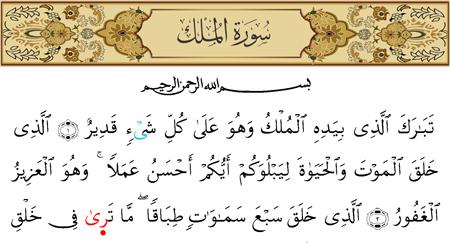 سُورَةُ المُلْكِ
بسم الله الرحمن الرحيم
تَبَٰرَكَ ٱلَّذِى بِيَدِهِ ٱلْمُلْكُ وَهُوَ عَلَىٰ كُلِّ شَىْءٍ قَدِيرٌ ١ ٱلَّذِى
خَلَقَ ٱلْمَوْتَ وَٱلْحَيَوٰةَ لِيَبْلُوَكُمْ أَيُّكُمْ أَحْسَنُ عَمَلًا ۚ وَهُوَ ٱلْعَزِيزُ
ٱلْغَفُورُ ٢ ٱلَّذِى خَلَقَ سَبْعَ سَمَٰوَٰتٍ طِبَاقًا ۖ مَّا تَرَىٰ فِى خَلْقِ